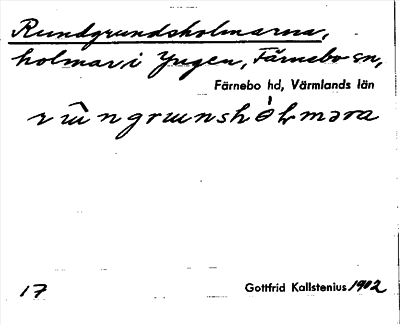 Rundgrundsholmarna,
holmar, i Yngen, Färnebo sn,
Färnebo hd, Värmlands län
17
Gottfrid Kallstenius 1902